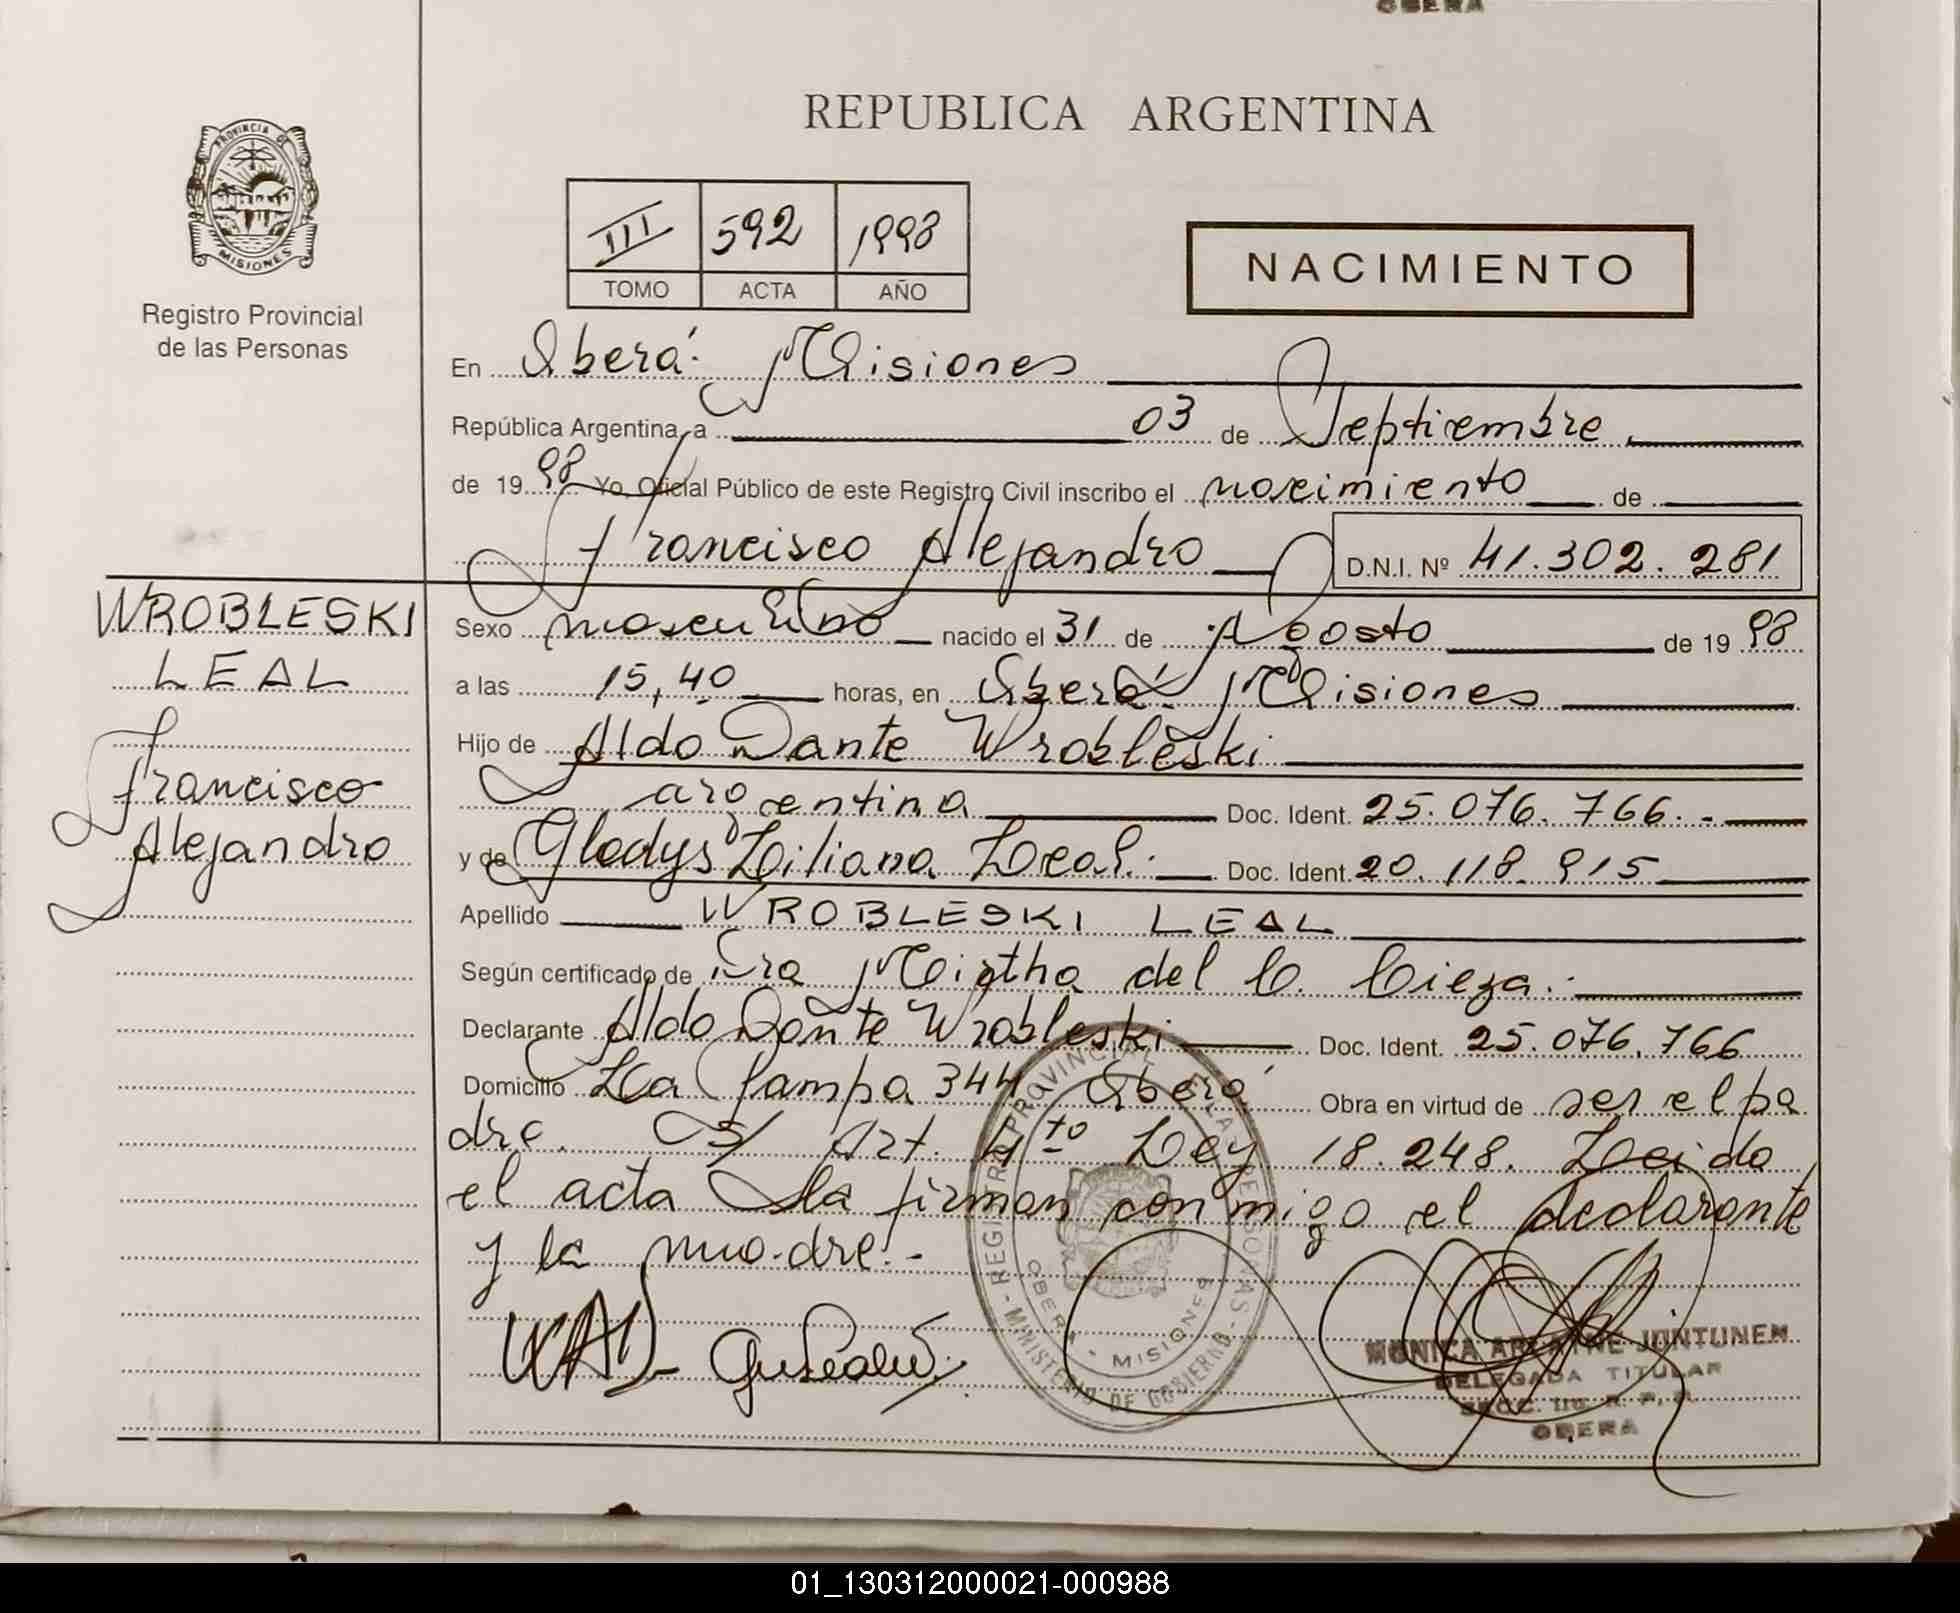 OBERA
REPUBLICA ARGENTINA
PROVINCIA DE
MISIONES
Registro Provincial
de las Personas
III 592 1998
TOMO ACTA AÑO
NACIMIENTO
En Oberá: Misiones
República Argentina, a 03 de Septiembre
de 19 98 Yo, Oficial Público de este Registro Civil inscribo el nacimiento de
Francisco Alejandro D.N.I. Nº 41.302.281
WROBLESKI
LEAL
Francisco
Alejandro
Sexo masculino nacido el 31 de Agosto de 19 98
a las 15,40 horas, en Oberá: Misiones
Hijo de Aldo Dante Wrobleski
argentina Doc. Ident. 25.076.766.-
y de Gladys Liliana Leal. Doc. Ident. 20.118.915
Apellido WROBLESKI LEAL
Según certificado de Dra Mirtha del C. Cieza.
Declarante Aldo Dante Wrobleski Doc. Ident. 25.076.766
Domicilio La Pampa 344 Oberá Obra en virtud de ser el pa
dre. S/ Art. 4to Ley 18.248. Leida
el acta la firman conmigo el declarante
y la madre.-
REGISTRO PROVINCIAL DE LAS PERSONAS - MINISTERIO DE GOBIERNO -
OBERA - MISIONES
MONICA ARIATNE JONTUNEN
DELEGADA TITULAR
SECC. R. P. P.
OBERA
01_130312000021-000988